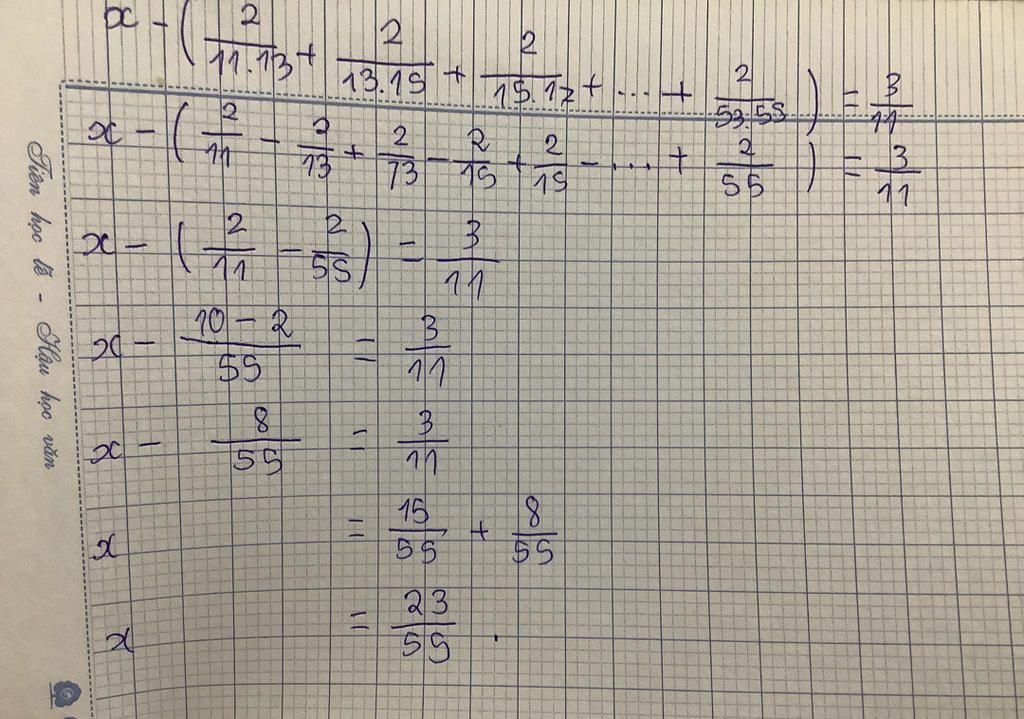 x - ( 2/11.13 + 2/13.15 + 2/15.17 + ... + 2/53.55 ) = 3/11
x - ( 2/11 - 2/13 + 2/13 - 2/15 + 2/15 - ... + 2/55 ) = 3/11
x - ( 2/11 - 2/55 ) = 3/11
x - 10 - 2/55 = 3/11
x - 8/55 = 3/11
x = 15/55 + 8/55
x = 23/55 .
Tiên học lễ - Hậu học văn